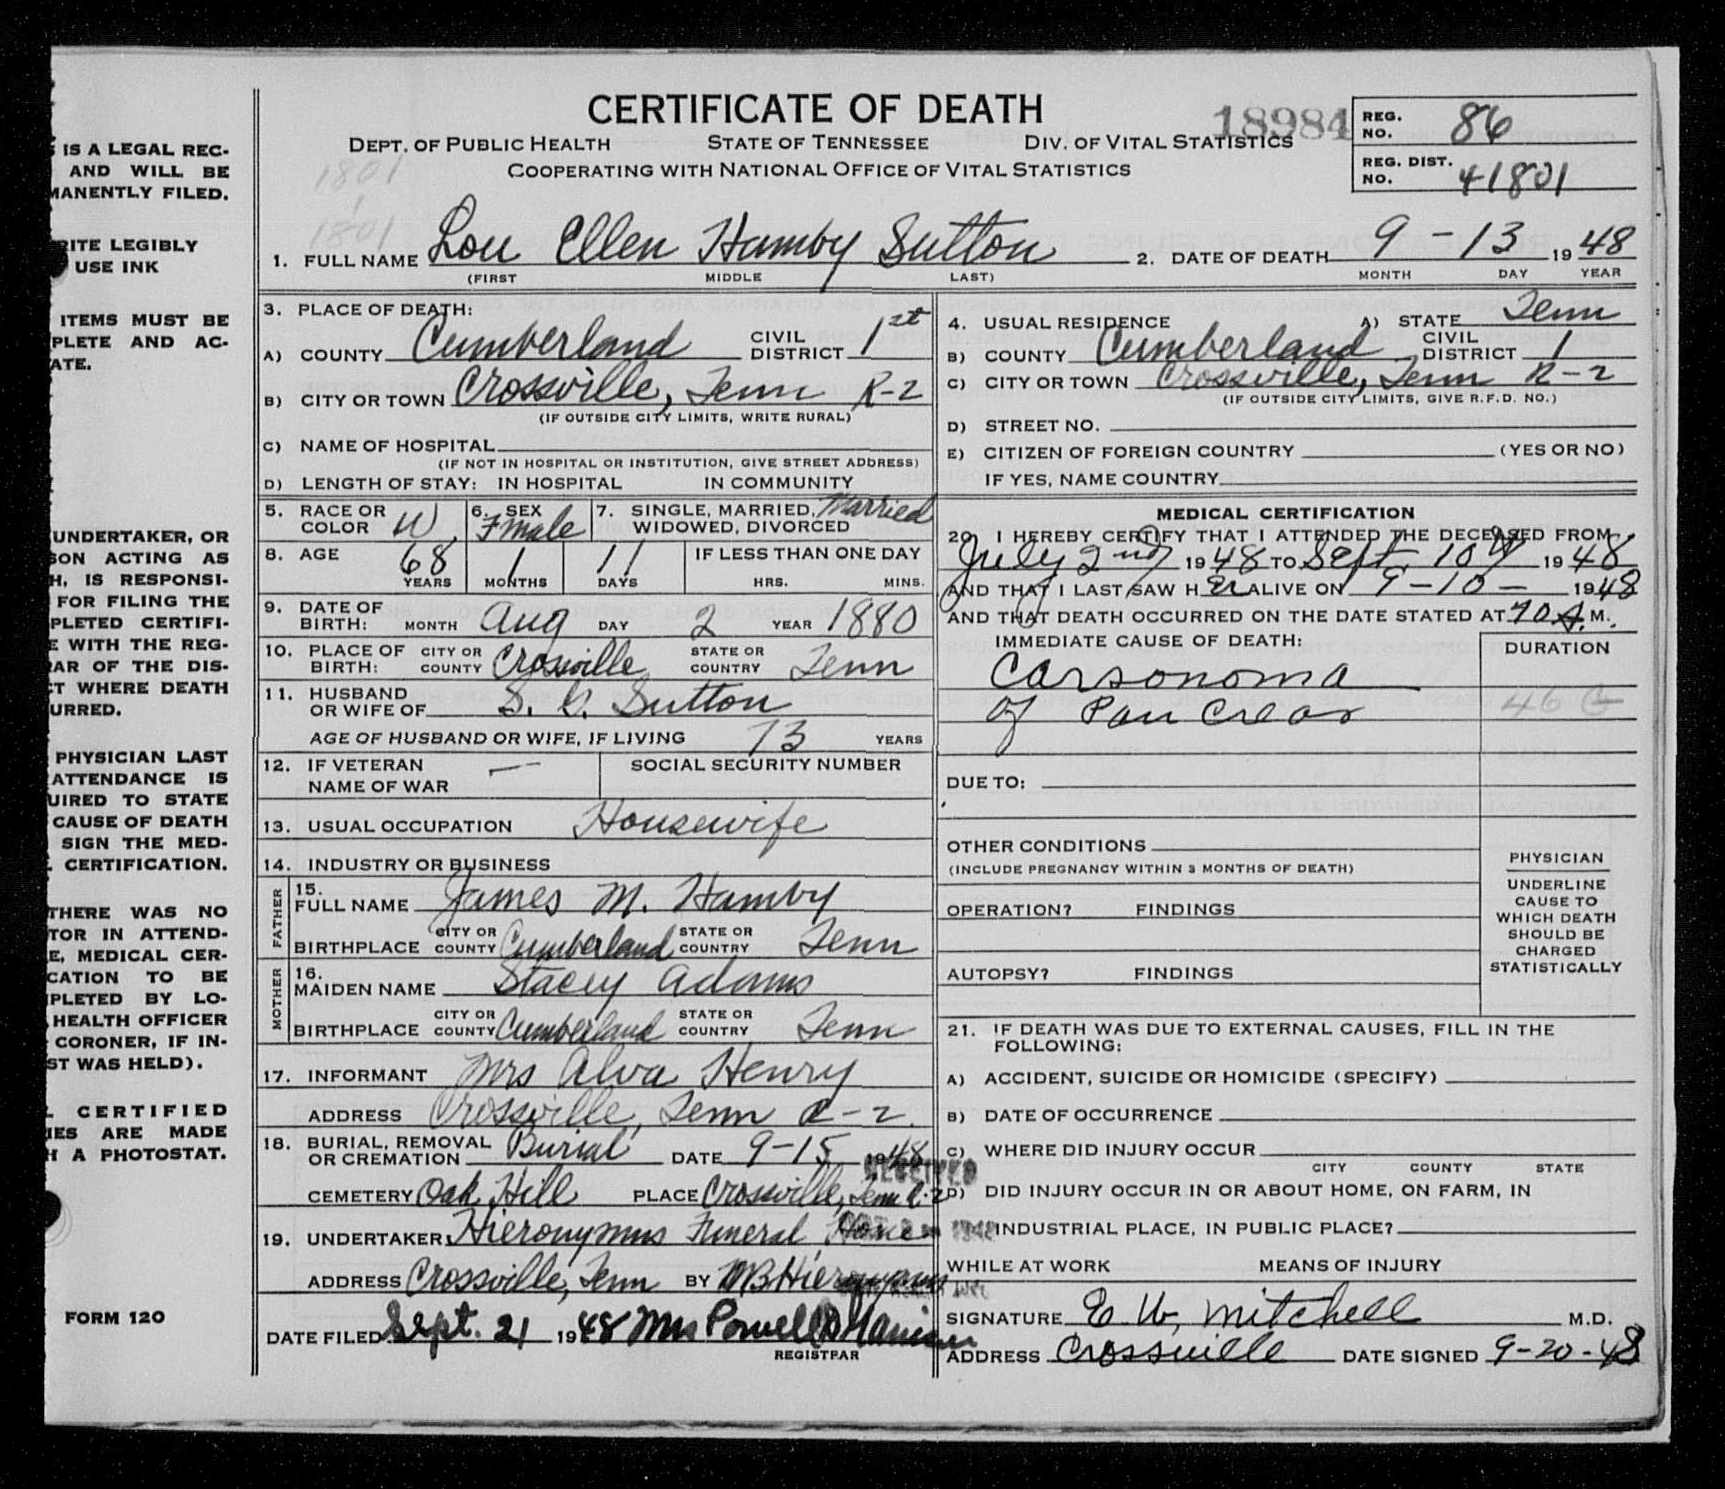 CERTIFICATE OF DEATH
18984
REG. NO. 86
DEPT. OF PUBLIC HEALTH STATE OF TENNESSEE DIV. OF VITAL STATISTICS
COOPERATING WITH NATIONAL OFFICE OF VITAL STATISTICS
REG. DIST. NO. 41801
1801
1801
1. FULL NAME Lou Ellen Hamby Sutton 2. DATE OF DEATH 9-13 1948
(FIRST MIDDLE LAST) MONTH DAY YEAR
3. PLACE OF DEATH:
A) COUNTY Cumberland CIVIL DISTRICT 1st
B) CITY OR TOWN Crossville, Tenn R-2
(IF OUTSIDE CITY LIMITS, WRITE RURAL)
C) NAME OF HOSPITAL
(IF NOT IN HOSPITAL OR INSTITUTION, GIVE STREET ADDRESS)
D) LENGTH OF STAY: IN HOSPITAL IN COMMUNITY
4. USUAL RESIDENCE A) STATE Tenn
B) COUNTY Cumberland CIVIL DISTRICT 1
C) CITY OR TOWN Crossville, Tenn R-2
(IF OUTSIDE CITY LIMITS, GIVE R.F.D. NO.)
D) STREET NO.
E) CITIZEN OF FOREIGN COUNTRY (YES OR NO)
IF YES, NAME COUNTRY
5. RACE OR COLOR W 6. SEX Fmale 7. SINGLE, MARRIED, WIDOWED, DIVORCED Married
8. AGE 68 YEARS 1 MONTHS 11 DAYS IF LESS THAN ONE DAY HRS. MINS.
9. DATE OF BIRTH: MONTH Aug DAY 2 YEAR 1880
10. PLACE OF BIRTH: CITY OR COUNTY Crossville STATE OR COUNTRY Tenn
11. HUSBAND OR WIFE OF S. G. Sutton
AGE OF HUSBAND OR WIFE, IF LIVING 73 YEARS
12. IF VETERAN NAME OF WAR — SOCIAL SECURITY NUMBER
13. USUAL OCCUPATION Housewife
14. INDUSTRY OR BUSINESS
FATHER
15. FULL NAME James M. Hamby
BIRTHPLACE CITY OR COUNTY Cumberland STATE OR COUNTRY Tenn
MOTHER
16. MAIDEN NAME Stacey Adams
BIRTHPLACE CITY OR COUNTY Cumberland STATE OR COUNTRY Tenn
17. INFORMANT Mrs Alva Henry
ADDRESS Crossville, Tenn R-2
18. BURIAL, REMOVAL OR CREMATION Burial DATE 9-15 1948
CEMETERY Oak Hill PLACE Crossville, Tenn R-2
19. UNDERTAKER Hieronymus Funeral Home
ADDRESS Crossville, Tenn BY MB Hieronymus
DATE FILED Sept. 21 1948 Mrs Powell
REGISTRAR
RECEIVED
MEDICAL CERTIFICATION
20. I HEREBY CERTIFY THAT I ATTENDED THE DECEASED FROM
July 2nd 1948 TO Sept. 10 1948
AND THAT I LAST SAW H er ALIVE ON 9-10- 1948
AND THAT DEATH OCCURRED ON THE DATE STATED AT 10 A.M.
IMMEDIATE CAUSE OF DEATH: DURATION
Carsonoma
of Pancreas
46
DUE TO:
OTHER CONDITIONS
(INCLUDE PREGNANCY WITHIN 3 MONTHS OF DEATH)
OPERATION? FINDINGS
AUTOPSY? FINDINGS
PHYSICIAN
UNDERLINE
CAUSE TO
WHICH DEATH
SHOULD BE
CHARGED
STATISTICALLY
21. IF DEATH WAS DUE TO EXTERNAL CAUSES, FILL IN THE
FOLLOWING:
A) ACCIDENT, SUICIDE OR HOMICIDE (SPECIFY)
B) DATE OF OCCURRENCE
C) WHERE DID INJURY OCCUR
CITY COUNTY STATE
D) DID INJURY OCCUR IN OR ABOUT HOME, ON FARM, IN
INDUSTRIAL PLACE, IN PUBLIC PLACE?
WHILE AT WORK MEANS OF INJURY
SIGNATURE E. W. Mitchell M.D.
ADDRESS Crossville DATE SIGNED 9-20-48
IS A LEGAL REC-
AND WILL BE
MANENTLY FILED.
RITE LEGIBLY
USE INK
ITEMS MUST BE
PLETE AND AC-
ATE.
UNDERTAKER, OR
SON ACTING AS
H, IS RESPONSI-
FOR FILING THE
PLETED CERTIFI-
E WITH THE REG-
AR OF THE DIS-
CT WHERE DEATH
URRED.
PHYSICIAN LAST
ATTENDANCE IS
UIRED TO STATE
CAUSE OF DEATH
SIGN THE MED-
CERTIFICATION.
THERE WAS NO
TOR IN ATTEND-
E, MEDICAL CER-
CATION TO BE
PLETED BY LO-
HEALTH OFFICER
CORONER, IF IN-
ST WAS HELD).
CERTIFIED
IES ARE MADE
H A PHOTOSTAT.
FORM 120